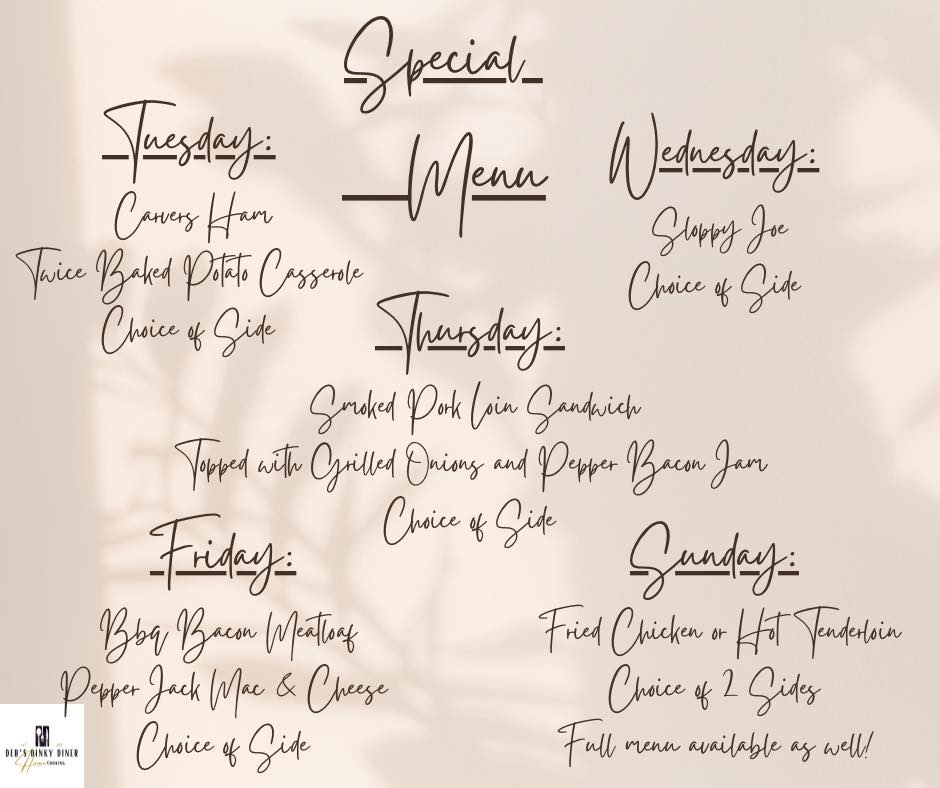 Special
Menu
Tuesday:
Carvers Ham
Twice Baked Potato Casserole
Choice of Side
Wednesday:
Sloppy Joe
Choice of Side
Thursday:
Smoked Pork Loin Sandwich
Topped with Grilled Onions and Pepper Bacon Jam
Choice of Side
Friday:
Bbq Bacon Meatloaf
Pepper Jack Mac & Cheese
Choice of Side
Sunday:
Fried Chicken or Hot Tenderloin
Choice of 2 Sides
Full menu available as well!
DEB'S DINKY DINER
Home COOKING